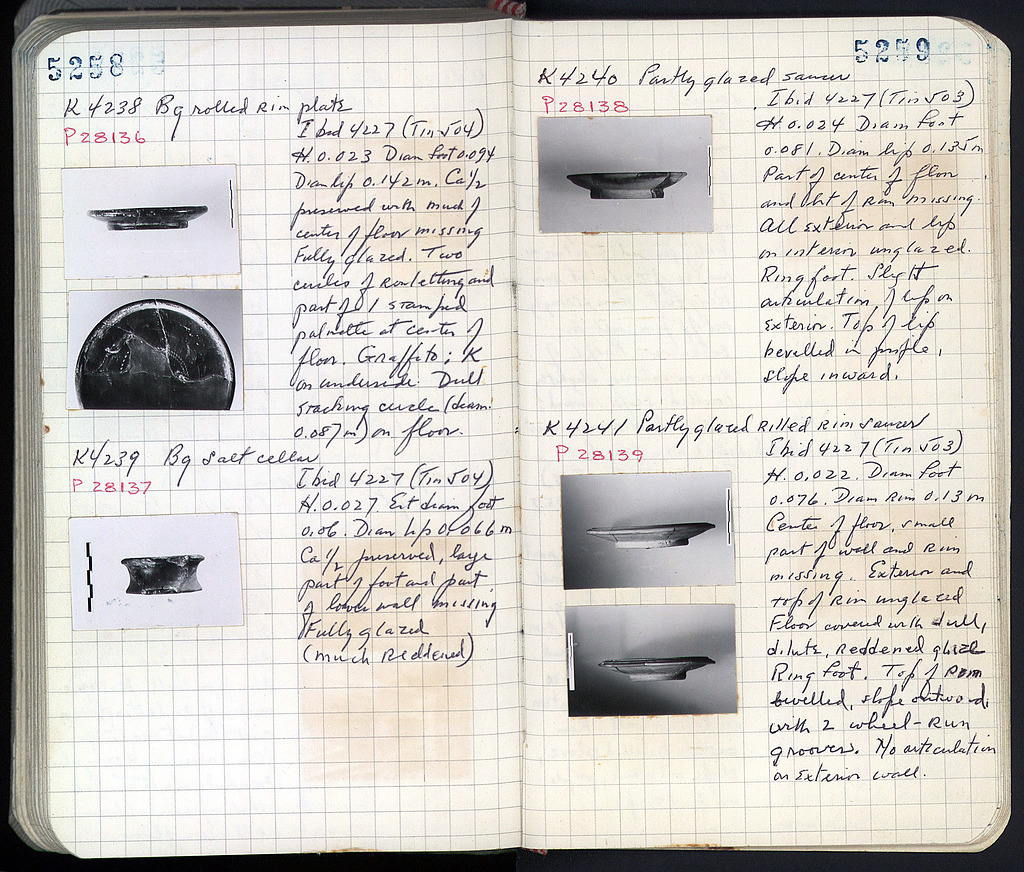 5258
K 4238 Bg rolled rim plate
P 28136
Ibid 4227 (Tin 504)
H. 0.023 Diam foot 0.094
Diam lip 0.142 m. Ca 1/2
preserved with much of
center of floor missing
Fully glazed. Two
circles of rouletting and
part of 1 stamped
palmette at center of
floor. Graffito; K
on underside. Dull
stacking circle (diam.
0.087 m) on floor.
K4239 Bg salt cellar
P 28137
Ibid 4227 (Tin 504)
H. 0.027. Est diam foot
0.06. Diam lip 0.066 m
Ca 1/2 preserved, large
part of foot and part
of lower wall missing
Fully glazed
(much reddened)
5259
K 4240 Partly glazed saucer
P 28138
Ibid 4227 (Tin 503)
H 0.024 Diam foot
0.081. Diam lip 0.135 m
Part of center of floor
and bit of rim missing.
All exterior and lip
on interior unglazed.
Ring foot. Slight
articulation of lip on
exterior. Top of lip
bevelled in profile,
slope inward.
K 4241 Partly glazed rilled rim saucer
P 28139
Ibid 4227 (Tin 503)
H. 0.022. Diam foot
0.076. Diam rim 0.13 m
Center of floor, small
part of wall and rim
missing. Exterior and
top of rim unglazed
Floor covered with dull,
dilute, reddened glaze
Ring foot. Top of rim
bevelled, slope outward,
with 2 wheel-run
grooves. No articulation
on exterior wall.